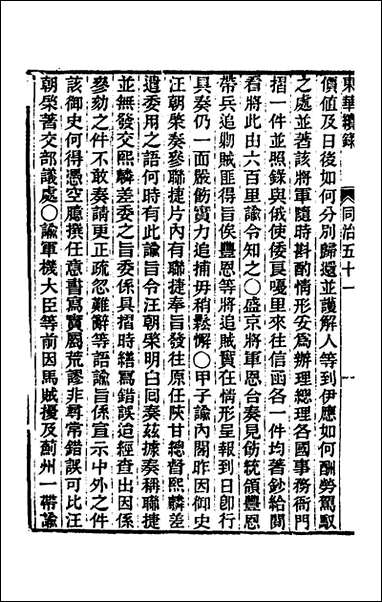 東華續錄 同治五十一 一
價值及日後如何分別歸還並護解人等到伊應如何酬勞駕馭
之處並著該將軍隨時斟酌情形妥爲辦理總理各國事務衙門
摺一件並照錄與俄使倭良嘎里來往信函各一件均著鈔給閱
看將此由六百里諭令知之〇盛京將軍恩合奏見飭統領豐恩
帶兵追剿賊匪得旨俟豐恩等將追賊實在情形呈報到日卽行
具奏仍一面嚴飭實力追捕毋稍鬆懈〇甲子諭內閣昨因御史
汪朝棨奏參聯捷片內有聯捷奉旨發往原任陝甘總督熙麟差
遣委用之語何時有此諭旨令汪朝棨明白回奏茲據奏稱聯捷
並無發交熙麟差委之旨委係具摺時繕寫錯誤這經查出因係
參劾之件不敢奏請更正疏忽難辭等語諭旨係宣示中外之件
該御史何得憑空臆撰任意書寫實屬荒謬非尋常錯誤可比汪
朝棨著交部議處〇諭軍機大臣等前因馬賊擾及薊州一帶諭